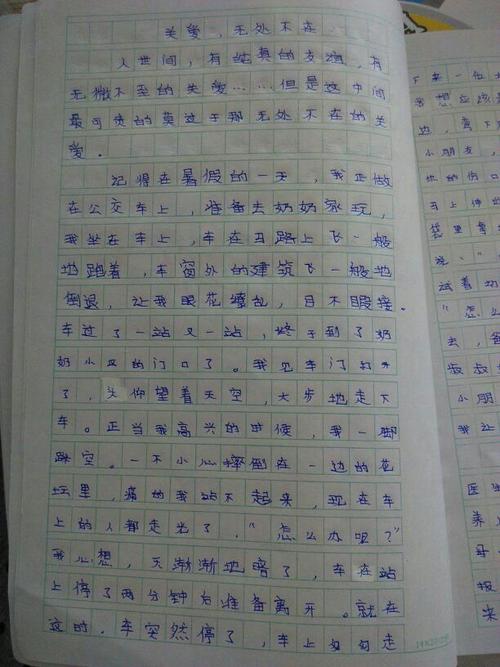 关爱，无处不在
人世间，有纯真的友谊，有
无微不至的关爱……但是这中间
最可贵的莫过于那无处不在的关
爱。
记得在暑假的一天，我正做
在公交车上，准备去奶奶家玩，
我坐在车上，车在马路上飞一般
地跑着，车窗外的建筑飞一般地
倒退，让我眼花缭乱，目不暇接。
车过了一站又一站，终于到了奶
奶小区的门口了。我见车门打开
了，头仰望着天空，大步地走下
车。正当我高兴的时候，我一脚
踩空。一不小心摔倒在一边的花
坛里，痛的我站不起来，现在车
上的人都走光了，“怎么办呢？”
我心想，天渐渐地暗了，车在站
上停了两分钟后准备离开。就在
这时，车突然停了，车上匆匆走
下来一位
我想应该是
边，弯下
小朋友，
她的伤口
马上伸
袋里拿
说：“
试着动
“怎么
去，爸
叔叔
小朋
我让
医生
养
母
报
来